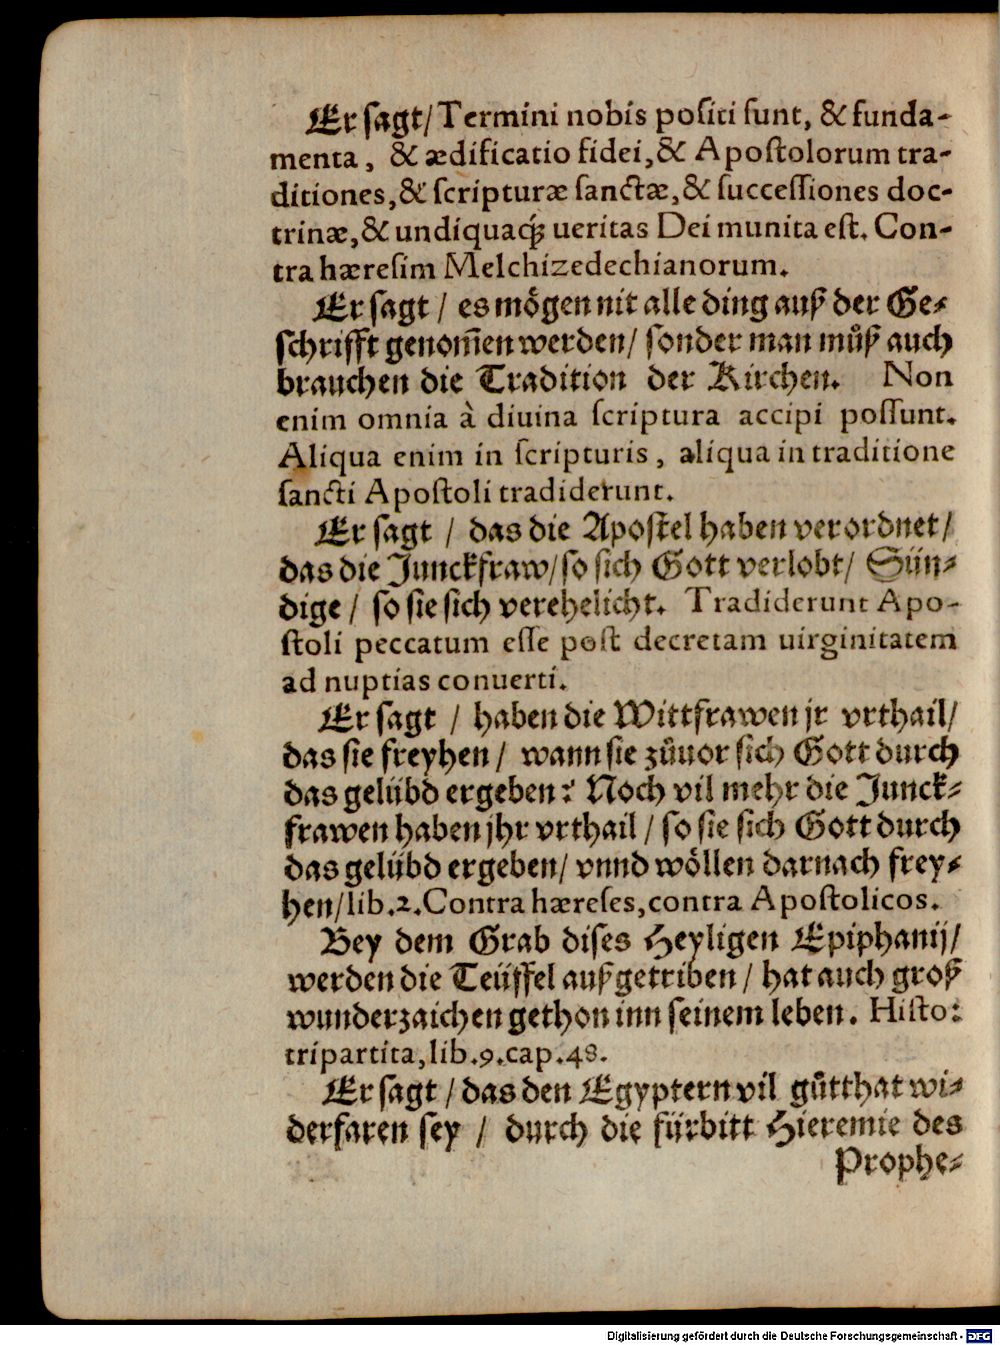 Er sagt/ Termini nobis positi sunt, & funda-
menta, & ædificatio fidei, & Apostolorum tra-
ditiones, & scripturæ sanctæ, & successiones doc-
trinæ, & undiquaq́; ueritas Dei munita est. Con-
tra hæresim Melchizedechianorum.
Er sagt / es mögen nit alle ding auß der Ge-
schrifft genom̄en werden/ sonder man můß auch
brauchen die Tradition der Kirchen. Non
enim omnia à diuina scriptura accipi possunt.
Aliqua enim in scripturis, aliqua in traditione
sancti Apostoli tradiderunt.
Er sagt / das die Apostel haben verordnet/
das die Junckfraw/ so sich Gott verlobt/ Sün-
dige / so sie sich verehelicht. Tradiderunt Apo-
stoli peccatum esse post decretam uirginitatem
ad nuptias conuerti.
Er sagt / haben die Wittfrawen jr vrthail/
das sie freyhen / wann sie zůuor sich Gott durch
das gelübd ergeben? Noch vil mehr die Junck-
frawen haben jhr vrthail / so sie sich Gott durch
das gelübd ergeben/ vnnd wöllen darnach frey-
hen/ lib.2. Contra hæreses, contra Apostolicos.
Bey dem Grab dises Heyligen Epiphanij/
werden die Teüffel außgetriben / hat auch groß
wunderzaichen gethon inn seinem leben. Histo:
tripartita, lib.9. cap.48.
Er sagt / das den Egyptern vil gůtthat wi-
derfaren sey / durch die fürbitt Hieremie des
Prophe-
Digitalisierung gefördert durch die Deutsche Forschungsgemeinschaft - DFG